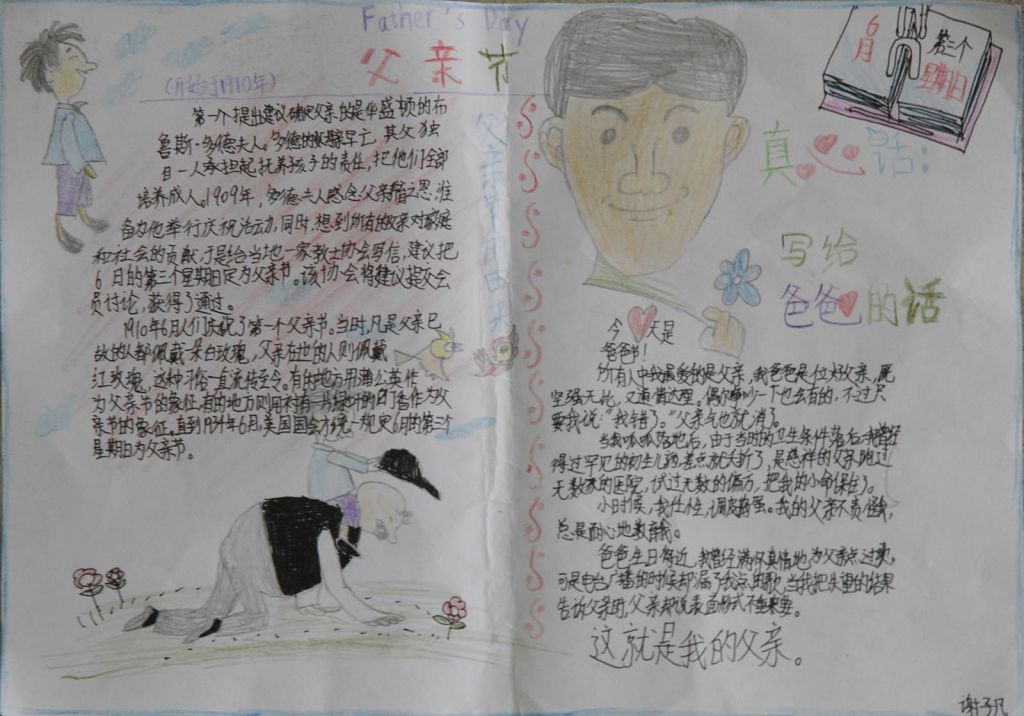 Father's Day
父亲节
(开始于1910年)
父亲节的由来
第一个提出建议确定父亲的是华盛顿的布
鲁斯·多德夫人。多德的母亲早亡,其父独
自一人承担起抚养孩子的责任,把他们全部
培养成人。1909年,多德夫人感念父亲养育之恩,准
备为他举行庆祝活动,同时,想到所有的父亲对家庭
和社会的贡献,于是给当地一家教士协会写信,建议把
6月的第三个星期日定为父亲节。该协会将建议提交会
员讨论,获得了通过。
1910年6月人们庆祝了第一个父亲节。当时,凡是父亲已
故的人都佩戴一朵白玫瑰,父亲在世的人则佩戴
红玫瑰,这种习俗一直流传至今。有的地方用蒲公英作
为父亲节的象征,有的地方则用衬有一片绿叶的白丁香作为父
亲节的象征。直到1934年6月,美国国会才统一规定6月的第三个
星期日为父亲节。
6月
第三个
星期日
真心话:
写给
爸爸的话
今天是
爸爸节!
所有人中我最爱的是父亲,我爸爸是位好父亲,既
坚强无比,又通情达理。偶尔争吵一下也会有的,不过只
要我说:“我错了。”父亲气也就消了。
当我呱呱落地后,由于当时的卫生条件落后,我曾经
得过罕见的初生儿病,差点就夭折了,是慈祥的父亲跑过
无数家的医院,试过无数的偏方,把我的小命保住了。
小时候,我任性,调皮,倔强。我的父亲不责怪我,
总是耐心地教育我。
爸爸生日将近,我曾经满怀真情地为父亲点过歌,
可是电台广播的时候却漏了我点的歌,当我把失望的结果
告诉父亲时,父亲却说表面形式不重要。
这就是我的父亲。
谢子凡